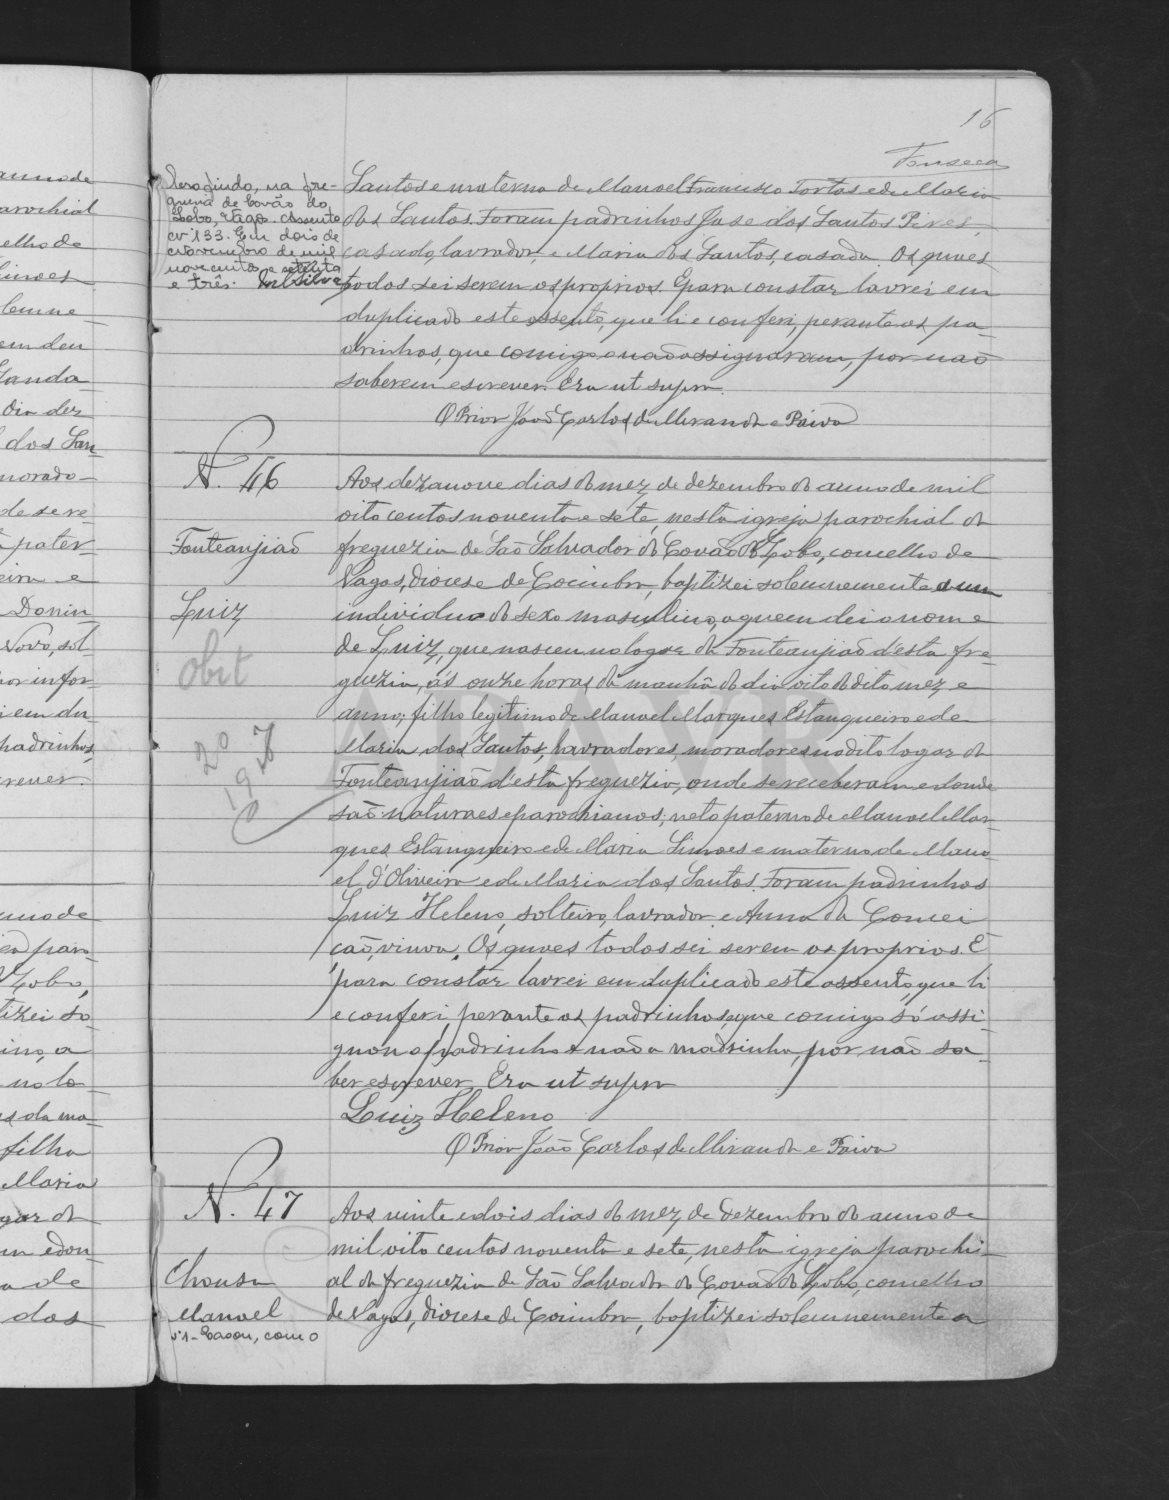 anno de
arochial
elho de
Simoes
lemne-
em deu
Landa
dia dez
dos San-
morado-
de se re-
pater-
eira e
Donin
Novo, sol-
por infor-
em du-
padrinhos,
crever.
anno de
paro-
Lobo,
tizei so-
ino, a
no lo-
da ma-
filha
Maria
gar da
edon-
a de
dos
16
Fonseca
na fre-
guesia de Covão do
Lobo, Vagos. Assento
nº 133. Em dois de
Novembro de mil
novecentos e setenta
e três. Silva
Santos e materna de Manoel Francisco Tortas e de Maria
dos Santos. Foram padrinhos José dos Santos Pires,
casado, lavrador, e Maria dos Santos, casada. Os quaes
todos sei serem os proprios. E para constar lavrei em
duplicado este assento, que li e conferi, perante os pa-
drinhos, que comigo e não assignaram, por não
saberem escrever. Era ut supra.
O Prior João Carlos de Miranda e Paiva
N. 46
Fonteanjião
Luiz
Obit
2º
Aos dezanove dias do mez de dezembro do anno de mil
oito centos noventa e sete, nesta igreja parochial da
freguezia de São Salvador do Covão do Lobo, concelho de
Vagos, diocese de Coimbra, baptizei solemnemente a um
individuo do sexo masculino, a quem dei o nome
de Luiz, que nasceu no logar da Fonteanjião d'esta fre-
guezia, ás onze horas da manhã do dia oito do dito mez e
anno; filho legitimo de Manoel Marques Estanqueiro e de
Maria dos Santos, lavradores, moradores no dito logar da
Fonteanjião d'esta freguezia, onde se receberam e donde
são naturaes e parochianos; neto paterno de Manoel Mar-
ques Estanqueiro e de Maria Simoes e materno de Mano-
el d'Oliveira e de Maria dos Santos. Foram padrinhos
Luiz Heleno, solteiro, lavrador e Anna da Concei
ção, viuva. Os quaes todos sei serem os proprios. E
para constar lavrei em duplicado este assento, que li
e conferi, perante os padrinhos, que comigo só assi-
gnou o padrinho e não a madrinha, por não sa-
ber escrever. Era ut supra
Luiz Heleno
O Prior João Carlos de Miranda e Paiva
N. 47
Chousa
Manoel
Casou, com o
Aos vinte e dois dias do mez de dezembro do anno de
mil oito centos noventa e sete, nesta igreja parochi-
al da freguezia de São Salvador do Covão do Lobo, concelho
de Vagos, diocese de Coimbra, baptizei solemnemente a